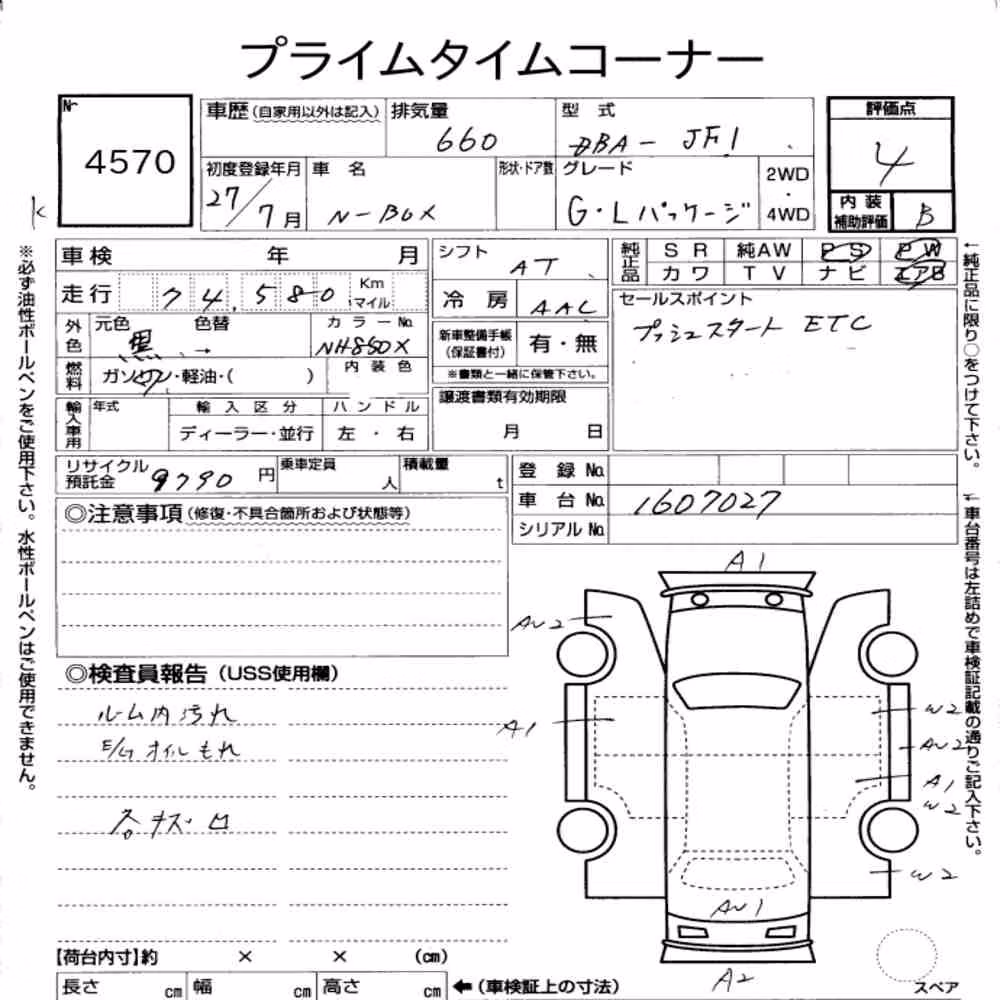 プライムタイムコーナー
№
4570
車歴(自家用以外は記入)
排気量
660
型 式
DBA- JF1
評価点
4
初度登録年月
27/7月
車 名
N-BOX
形状・ドア数
グレード
G・Lパッケージ
2WD
・
4WD
内 装
補助評価
B
※必ず油性ボールペンをご使用下さい。水性ボールペンはご使用できません。
車検 年 月
走行 74,580 Km マイル
外色
元色 色替
黒 →
カラーNo.
NH850X
燃料
ガソリン・軽油・( )
内 装 色
輸入車用
年式
輸 入 区 分
ディーラー・並行
ハ ン ド ル
左 ・ 右
シフト
AT
冷 房
AAC
新車整備手帳
(保証書付)
有・無
※書類と一緒に保管下さい。
譲渡書類有効期限
月 日
純正品
S R 純AW P S P W
カ ワ T V ナ ビ エアB
セールスポイント
プッシュスタート ETC
←純正品に限り○をつけて下さい。
リサイクル
預託金
9790 円
乗車定員
人
積載量
t
登 録 No.
車 台 No.
1607027
シリアル No.
←車台番号は左詰めで車検証記載の通りご記入下さい。
◎注意事項(修復・不具合箇所および状態等)
◎検査員報告(USS使用欄)
ルーム内汚れ
E/G オイルもれ
各キズ凹
A1
AU2
A1
W2
AU2
A1
W2
W2
AU1
A2
スペア
【荷台内寸】約 × × (cm)
長さ cm 幅 cm 高さ cm
←(車検証上の寸法)